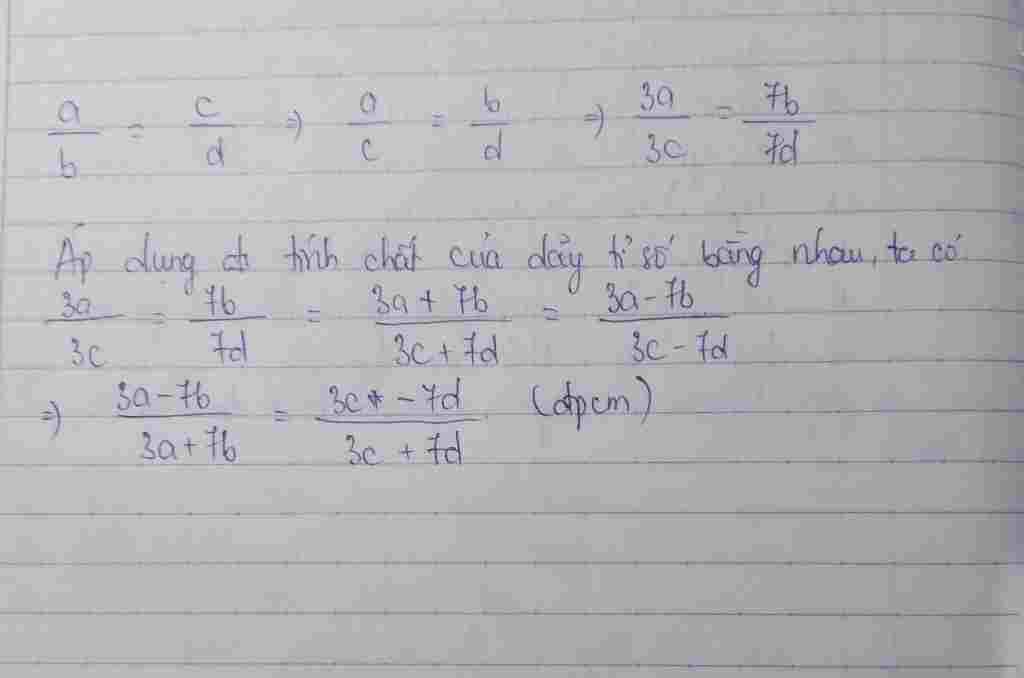 a/b = c/d => a/c = b/d => 3a/3c = 7b/7d
Áp dụng tính chất của dãy tỉ số bằng nhau, ta có
3a/3c = 7b/7d = (3a + 7b)/(3c + 7d) = (3a - 7b)/(3c - 7d)
=> (3a - 7b)/(3a + 7b) = (3c - 7d)/(3c + 7d) (đpcm)